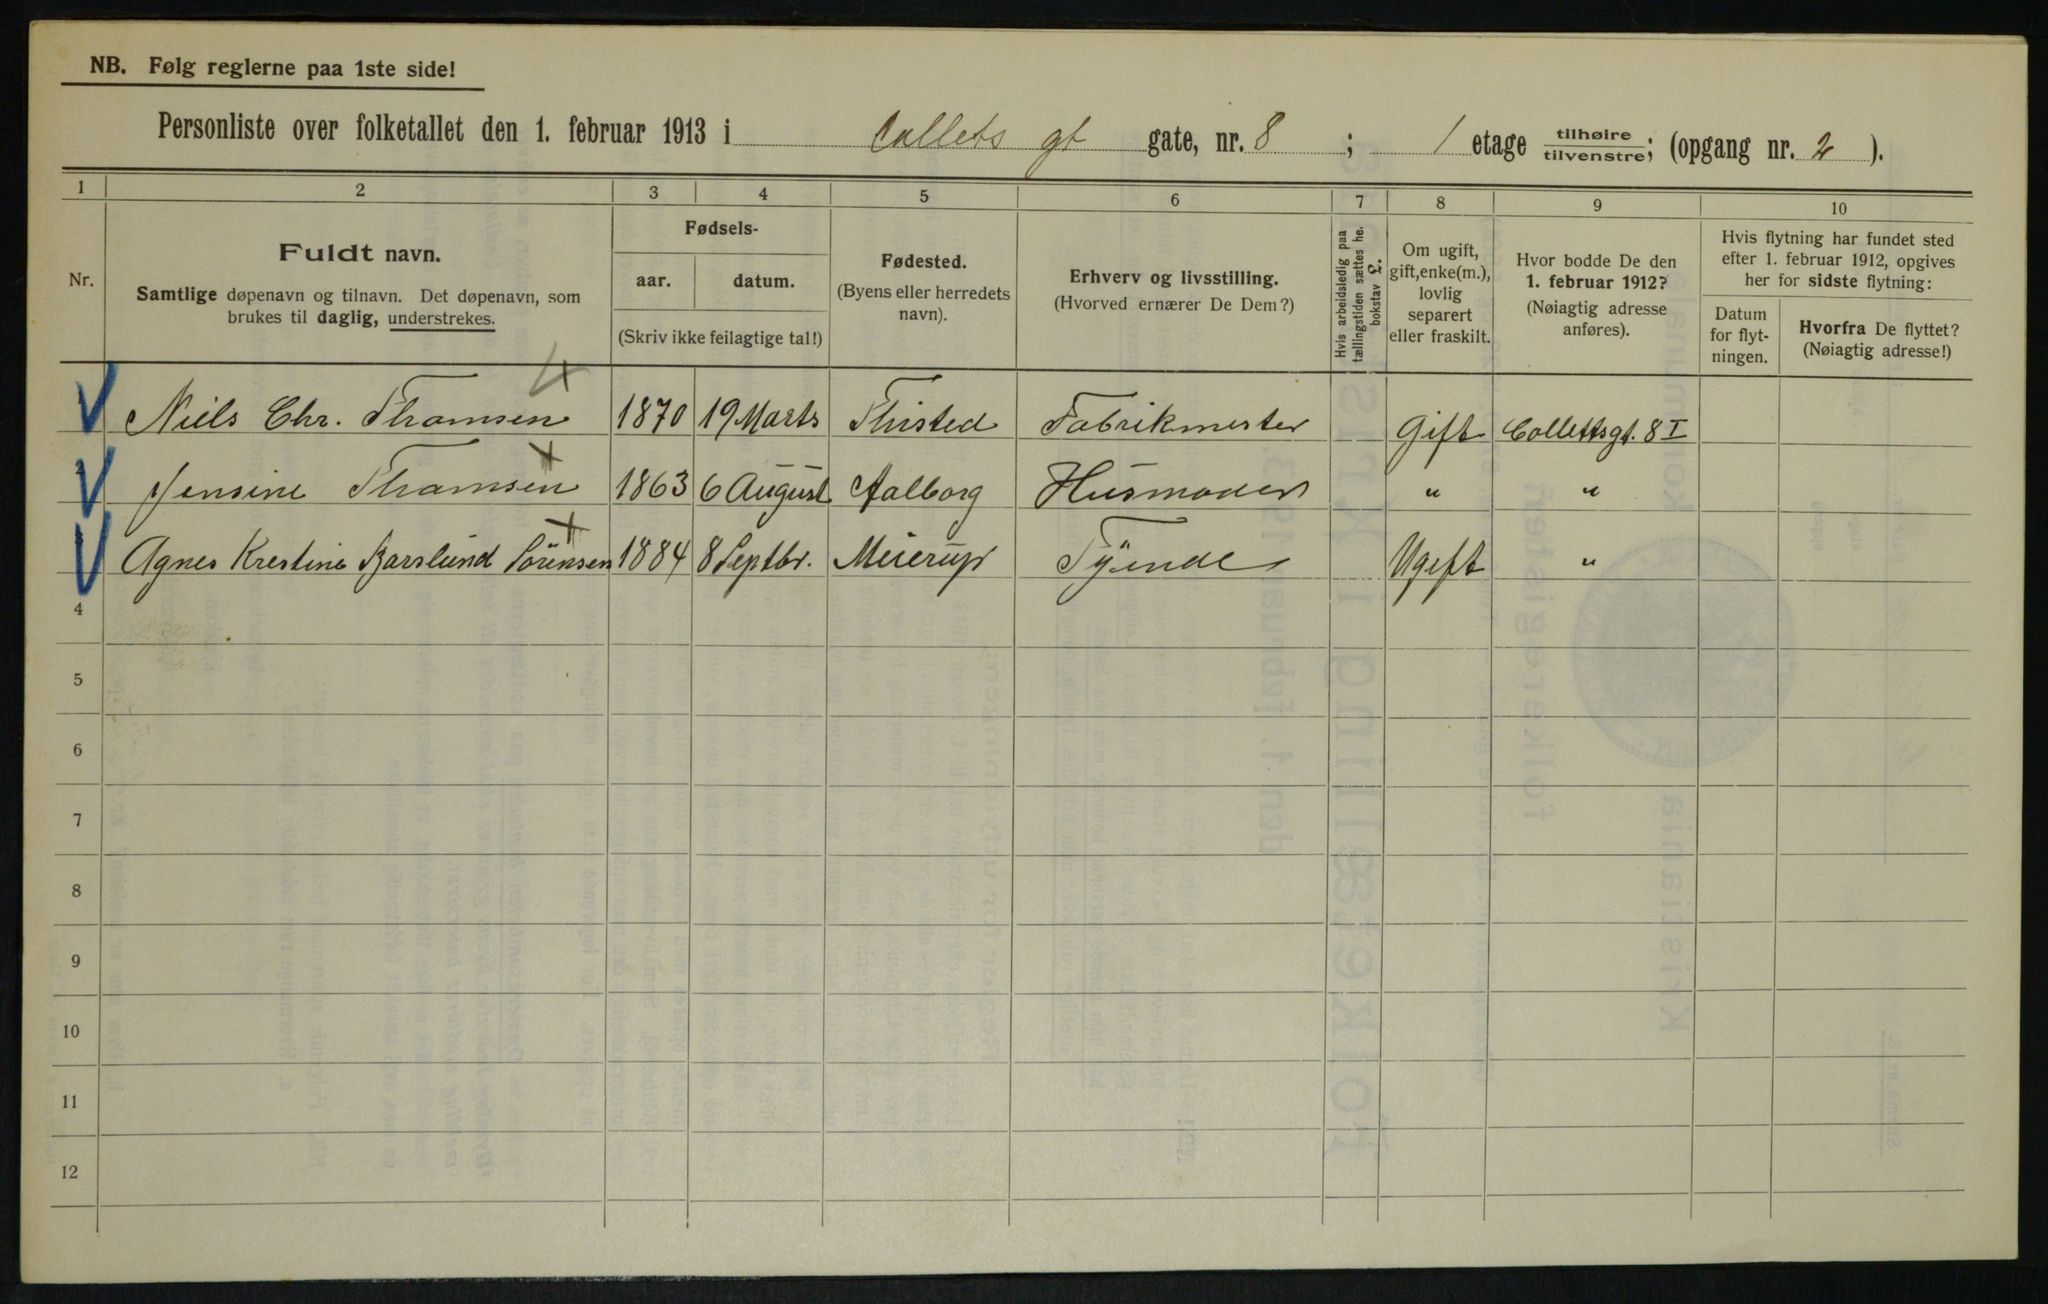 NB. Følg reglerne paa 1ste side!
Personliste over folketallet den 1. februar 1913 i Collets gt gate, nr. 8 ; 1 etage tilhøire tilvenstre; (opgang nr. 2 ).
1 2 3 4 5 6 7 8 9 10
Nr.
Fuldt navn.
Samtlige døpenavn og tilnavn. Det døpenavn, som
brukes til daglig, understrekes.
Fødsels-
aar. datum.
(Skriv ikke feilagtige tal!)
Fødested.
(Byens eller herredets
navn).
Erhverv og livsstilling.
(Hvorved ernærer De Dem?)
Hvis arbeidsledig paa
tællingstiden sættes he.
bokstav L.
Om ugift,
gift, enke(m.),
lovlig
separert
eller fraskilt.
Hvor bodde De den
1. februar 1912?
(Nøiagtig adresse
anføres).
Hvis flytning har fundet sted
efter 1. februar 1912, opgives
her for sidste flytning:
Datum
for flyt-
ningen.
Hvorfra De flyttet?
(Nøiagtig adresse!)
Niels Chr. Thomsen 1870 19 Marts Thisted Fabrikmester Gift Collettsgt. 8 I
Jensine Thomsen 1863 6 August Aalborg Husmoder " "
Agnes Krestine Barslund Sörensen 1884 8 Septbr. Meierup Tyende Ugift "
4
5
6
7
8
9
10
11
12